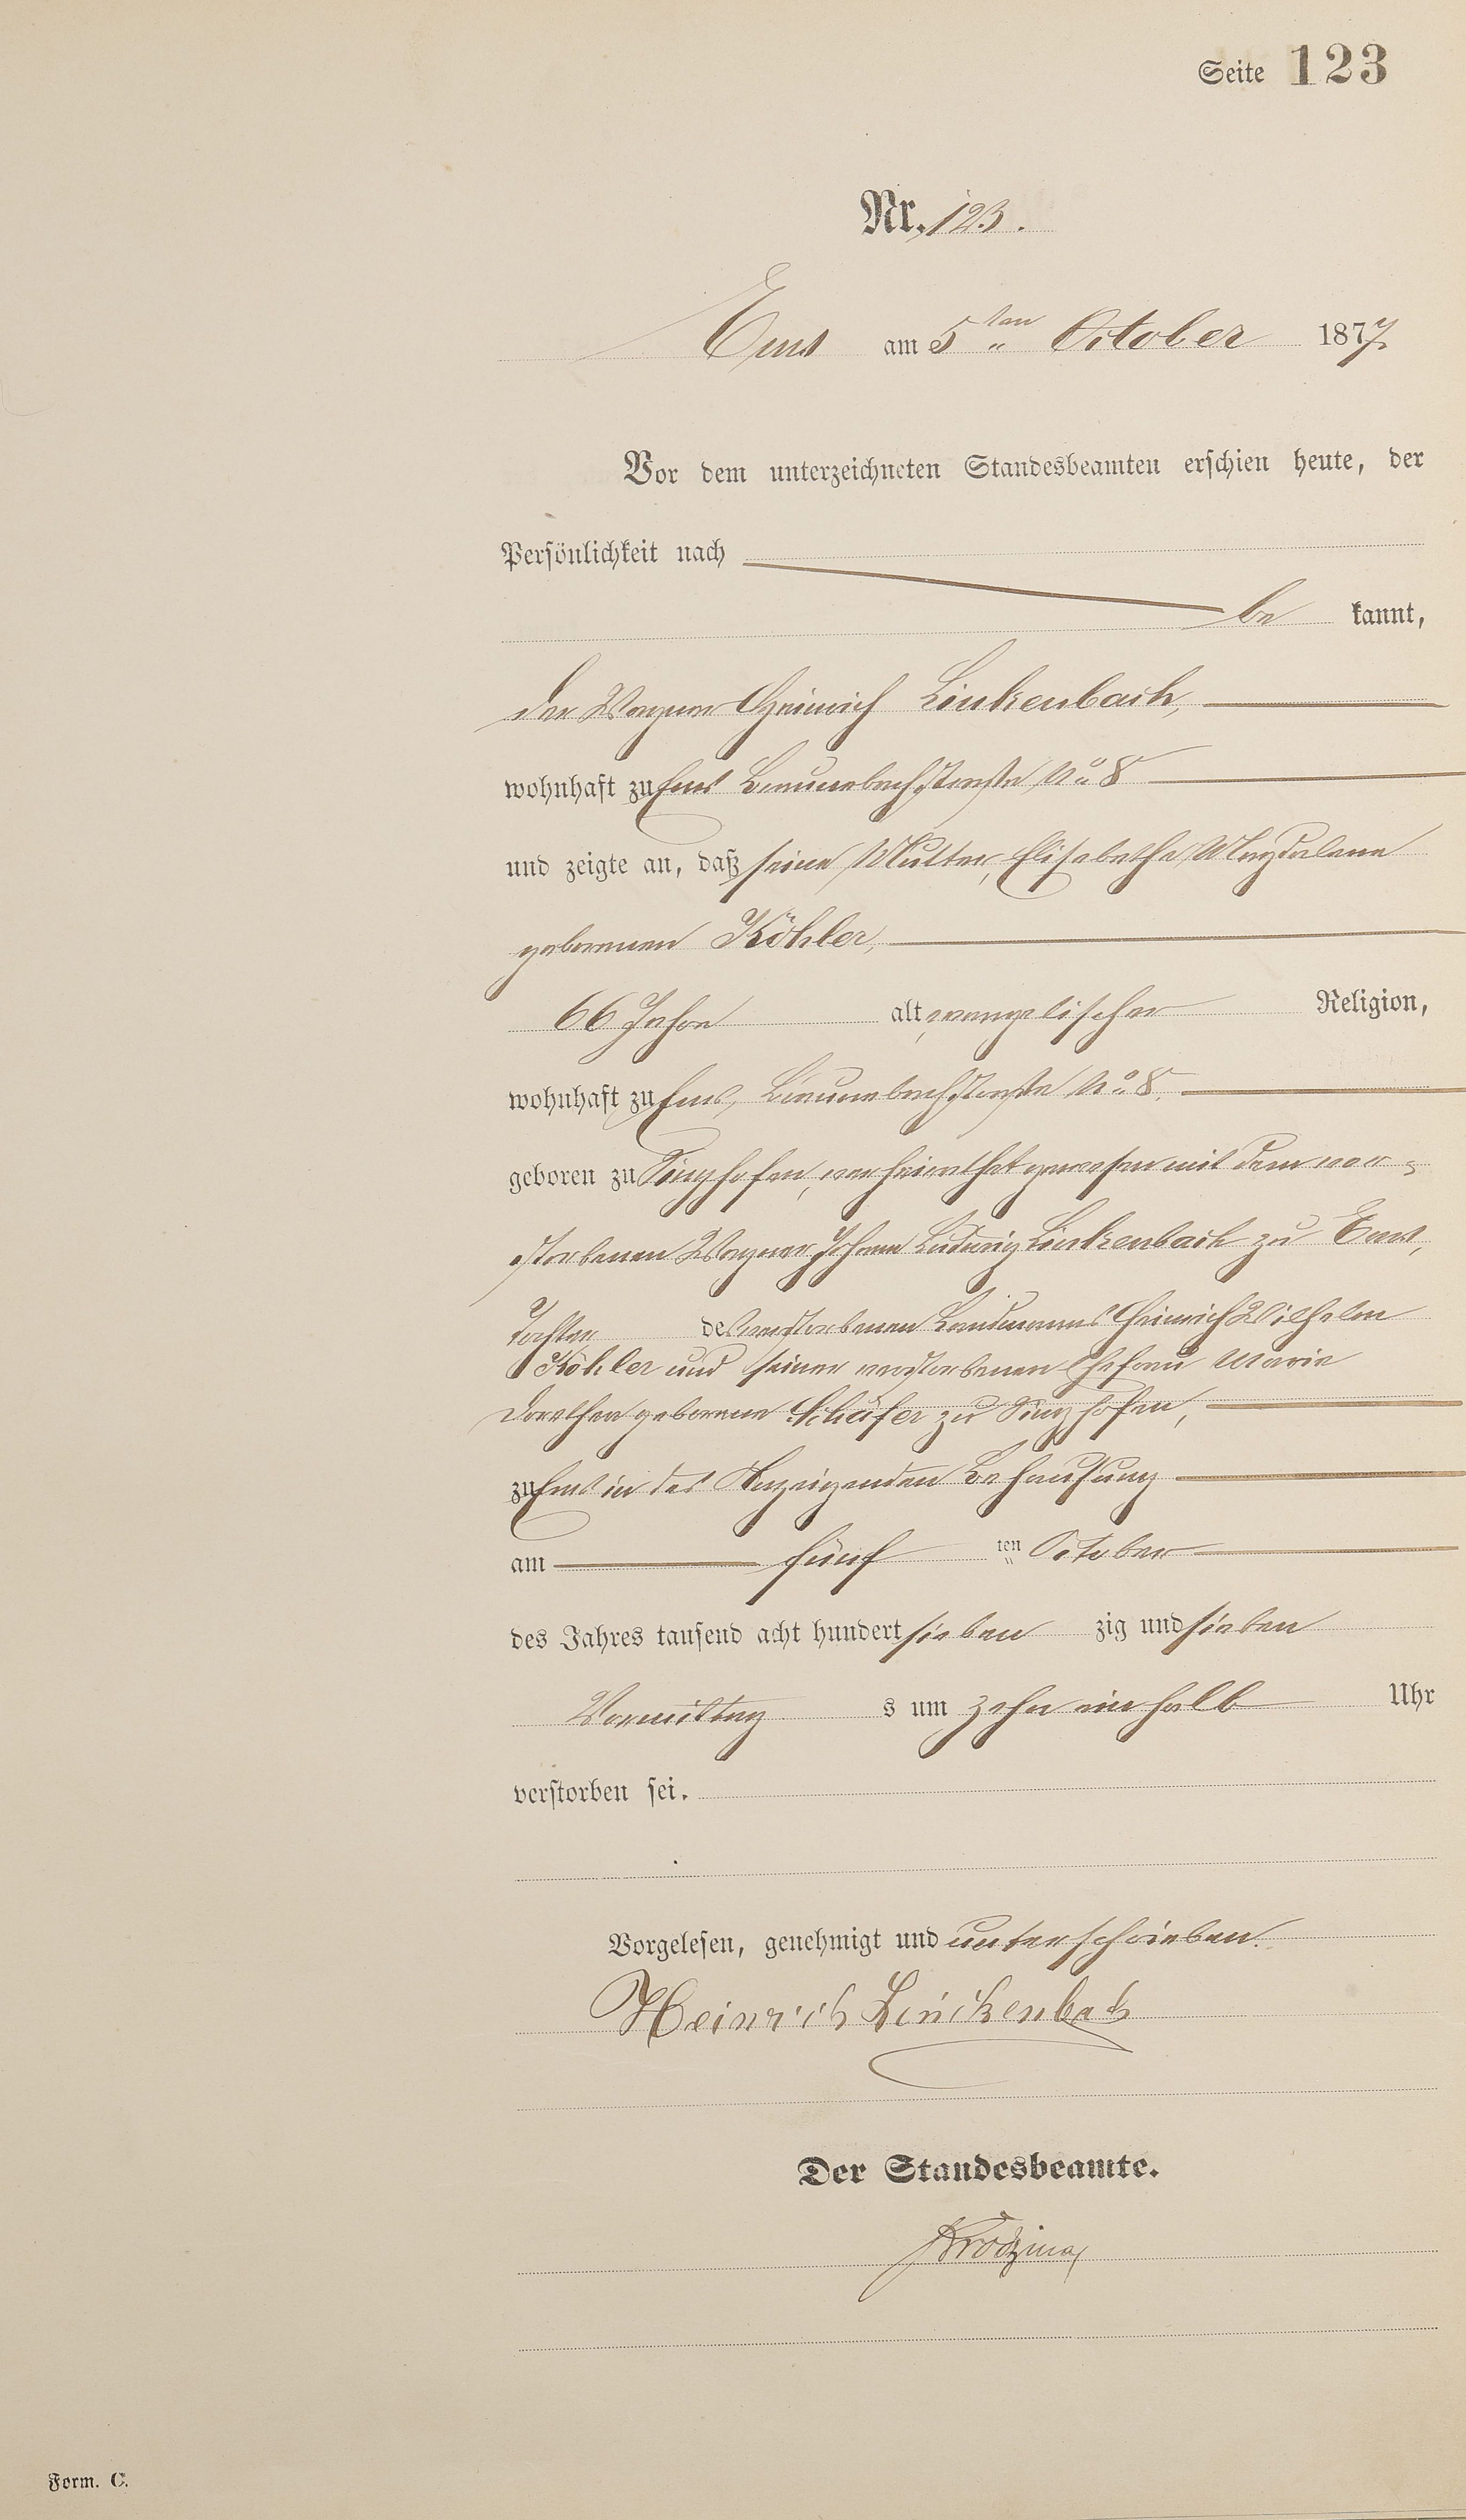 Seite 123
Nr. 123.
Ems am 5ten October 1877.
Vor dem unterzeichneten Standesbeamten erschien heute, der
Persönlichkeit nach
be kannt,
der Wagner Heinrich Linkenbach,
wohnhaft zu Ems Braunebachstraße No 8
und zeigte an, daß seine Mutter, Elisabetha Magdalena
geborenen Köhler,
66 Jahre alt, evangelischer Religion,
wohnhaft zu Ems, Braunebachstraße No 8.
geboren zu Singhofen, verheirathet gewesen mit dem ver-
storbenen Wagner Johann Ludwig Linkenbach zu Ems,
Tochter des verstorbenen Landmanns Heinrich Wilhelm
Köhler und seiner verstorbenen Ehefrau Marie
Dorothea geborene Schäfer zu Singhofen,
zu Ems in des Anzeigenden Behausung
am fünf ten October
des Jahres tausend acht hundert sieben zig und sieben
Vormittag s um zehn ein halb Uhr
verstorben sei.
Vorgelesen, genehmigt und unterschrieben.
Heinrich Linckenbach
Der Standesbeamte.
Form. C.